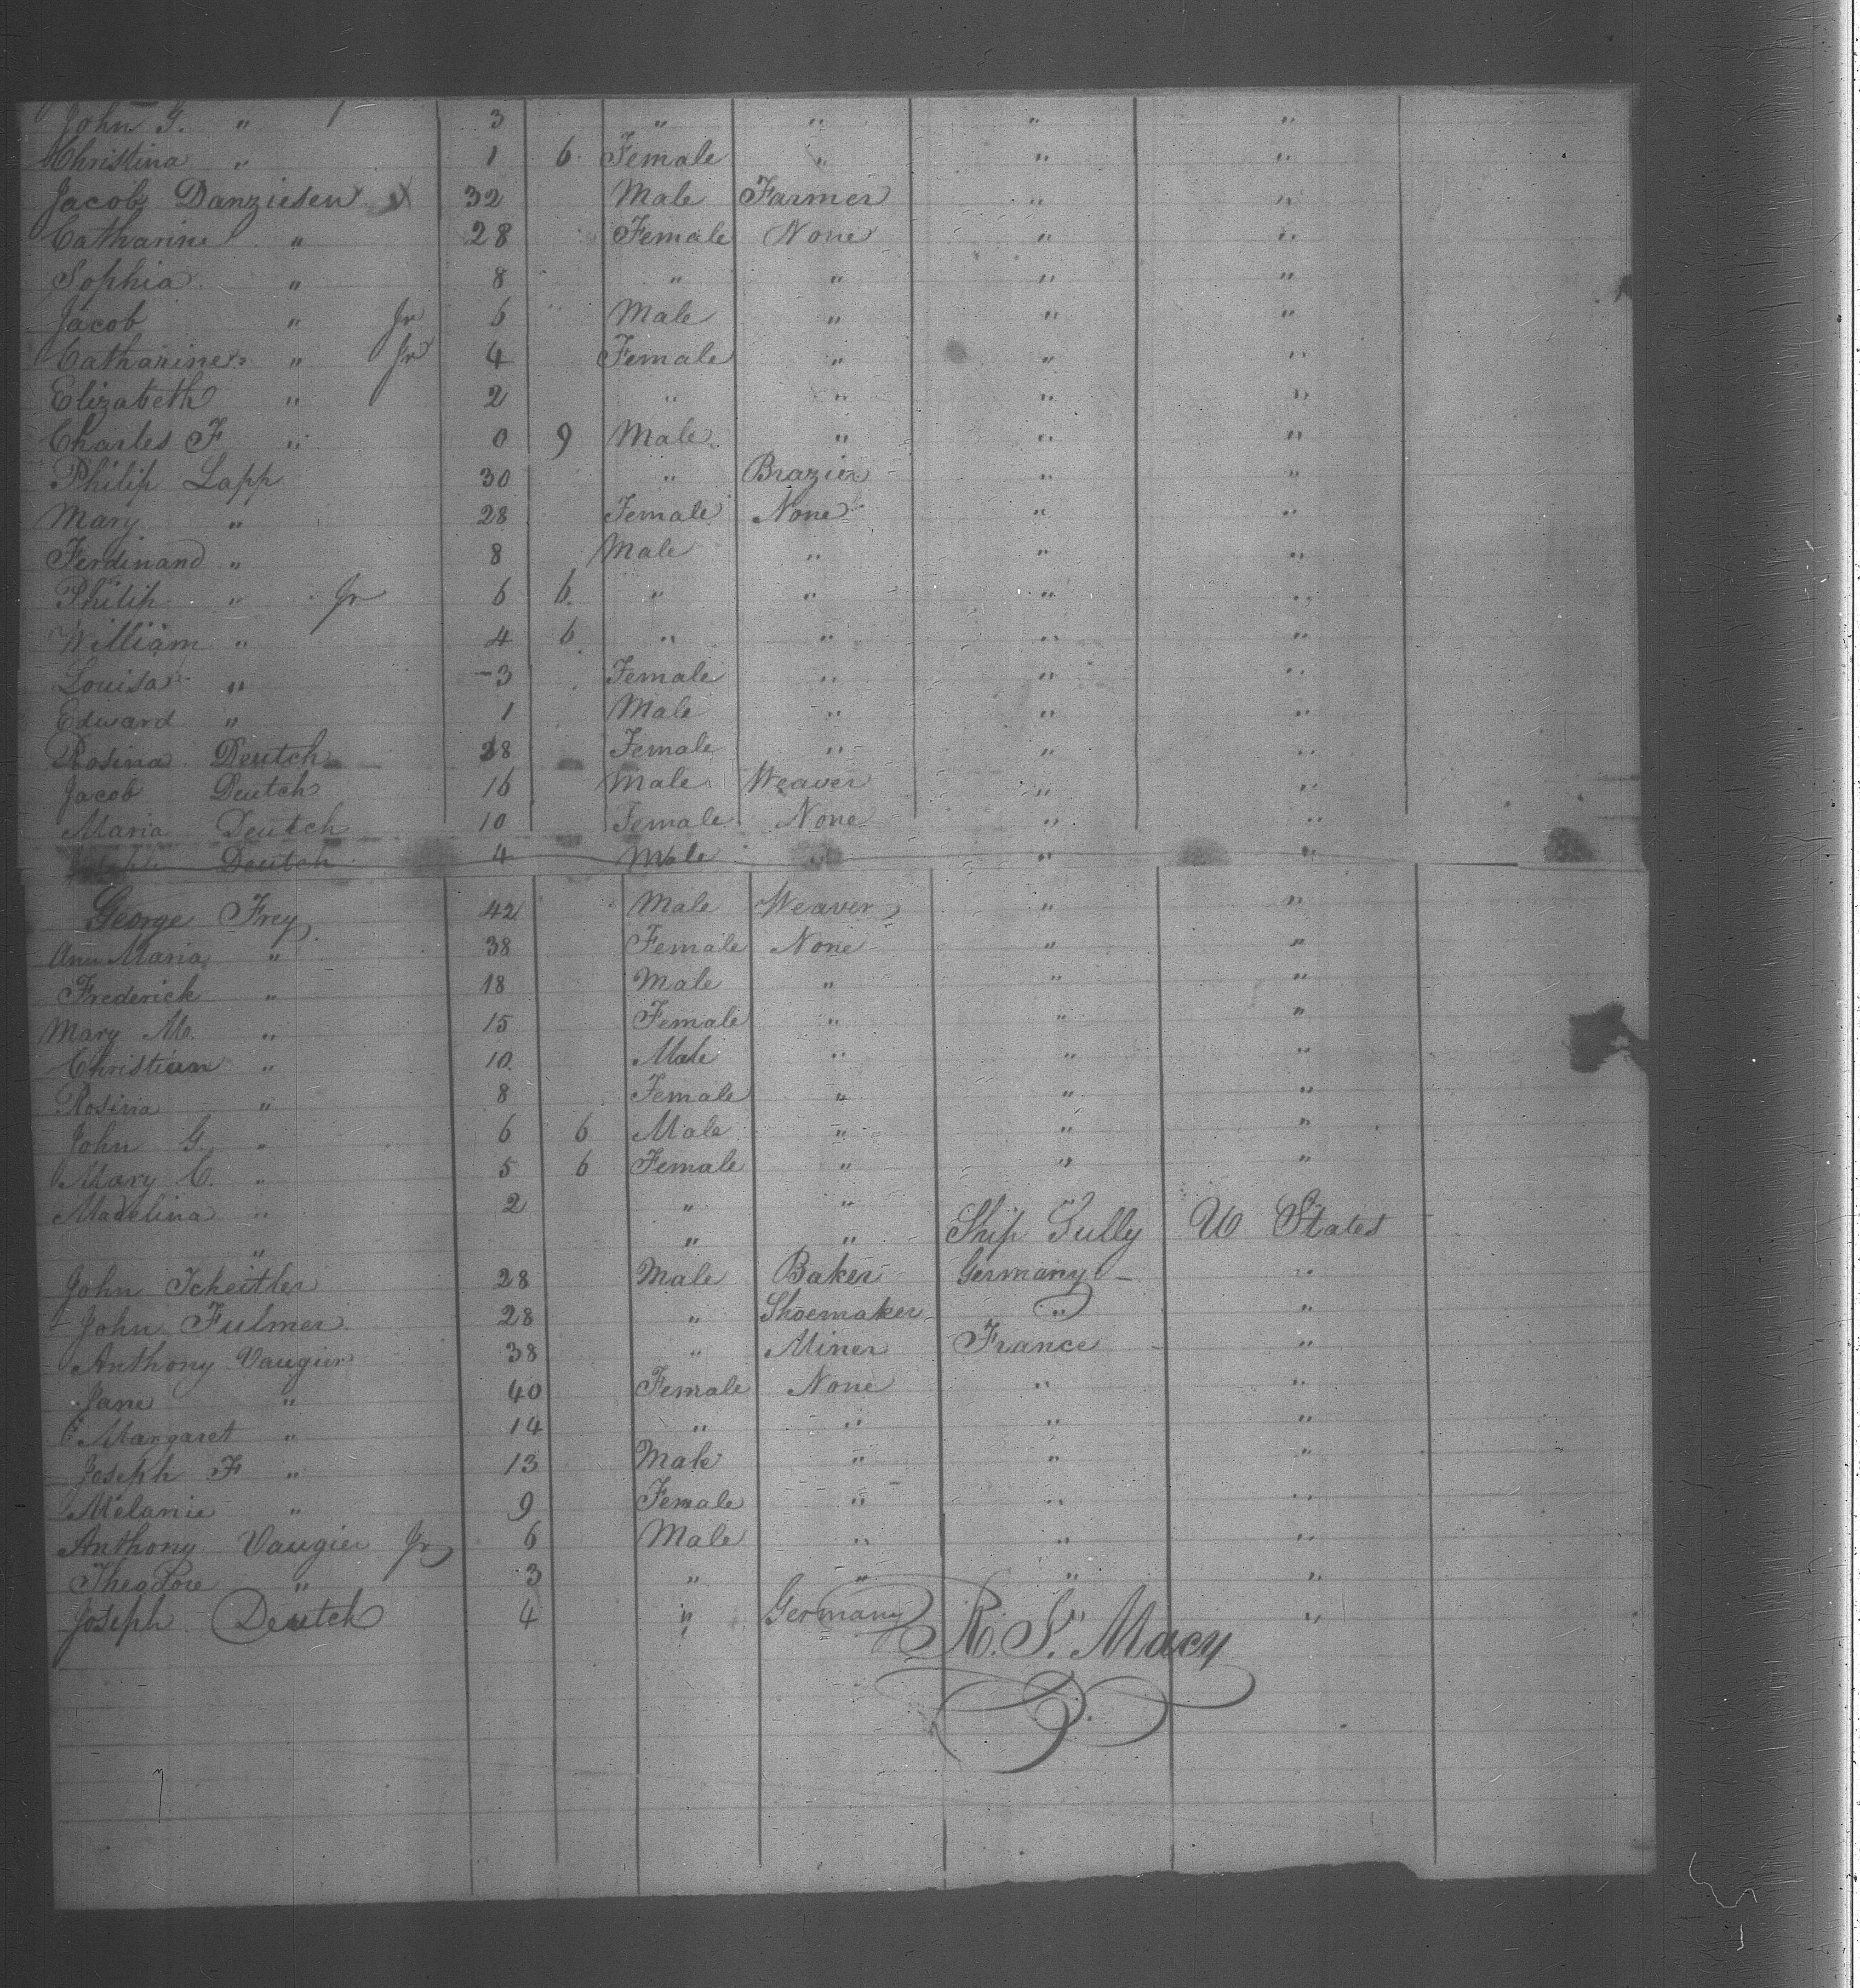 John G. " 3 " " " "
Christina " 1 6 Female " " "
Jacob Danziesen 32 Male Farmer " "
Catharine " 28 Female None " "
Sophia " 8 " " " "
Jacob " Jr 6 Male " " "
Catharine " Jr 4 Female " " "
Elizabeth " 2 " " " "
Charles F " 0 9 Male " " "
Philip Lapp 30 " Brazier " "
Mary " 28 Female None " "
Ferdinand " 8 Male " " "
Philip " Jr 6 6 " " " "
William " 4 6 " " " "
Louisa " 3 Female " " "
Edward " 1 Male " " "
Rosina Deutch Female " " "
Jacob Deutch 16 Male Weaver " "
Maria Deutch 10 Female None " "
Deutch 4 Male " " "
George Frey 42 Male Weaver " "
Ann Maria " 38 Female None " "
Frederick " 18 Male " " "
Mary M. " 15 Female " " "
Christian " 10 Male " " "
Rosina " 8 Female " " "
John G. " 6 6 Male " " "
Mary C. " 5 6 Female " " "
Madelina " 2 " "
" " " Ship Sully U States
John 28 Male Baker Germany "
John Fulmer 28 " Shoemaker " "
Anthony Vaugier 38 " Miner France "
Jane " 40 Female None " "
Margaret " 14 " " " "
Joseph F " 13 Male " " "
Melanie " 9 Female " " "
Anthony Vaugier Jr 6 Male " " "
Theodore " 3 " " " "
Joseph Deutch 4 " Germany " "
R. J. Macy